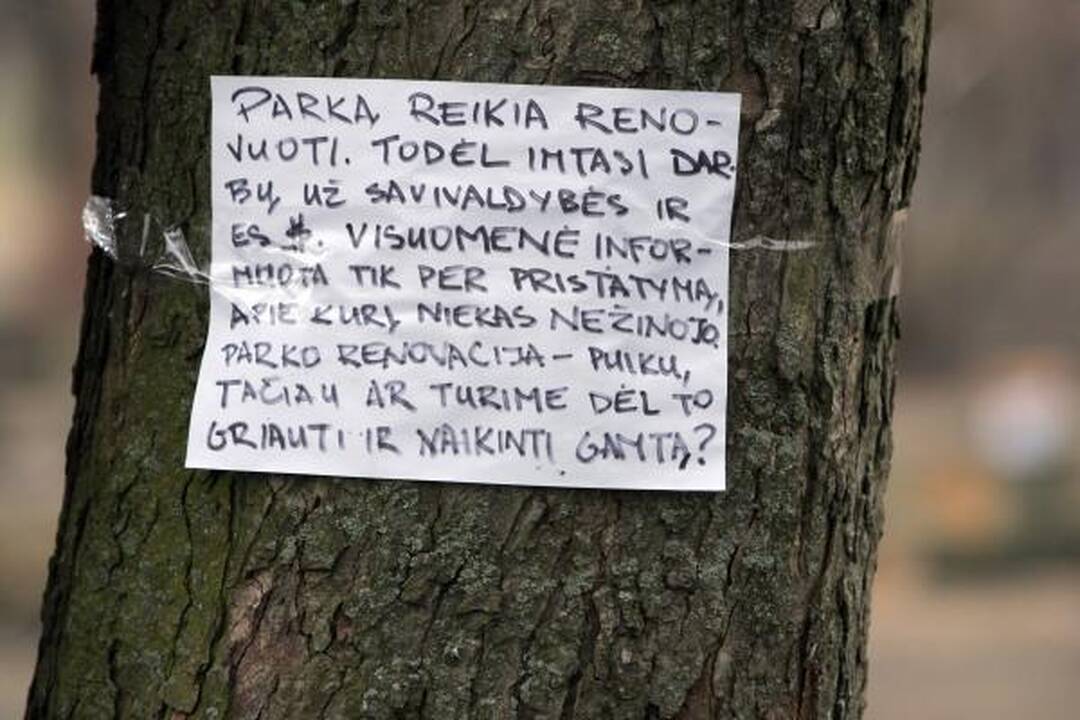 PARKĄ REIKIA RENO-
VUOTI. TODĖL IMTASI DAR-
BŲ, UŽ SAVIVALDYBĖS IR
ES $. VISUOMENĖ INFOR-
MUOTA TIK PER PRISTATYMĄ,
APIE KURĮ NIEKAS NEŽINOJO.
PARKO RENOVACIJA – PUIKU,
TAČIAU AR TURIME DĖL TO
GRIAUTI IR NAIKINTI GAMTĄ?